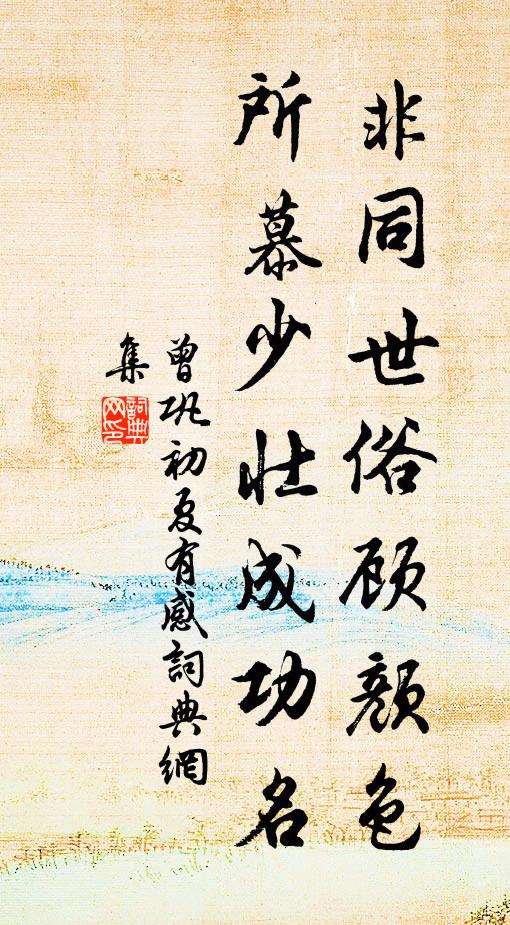 非同世俗顾颜色
所慕少壮成功名
曾巩初夏有感詞典網
集
詞典
网印